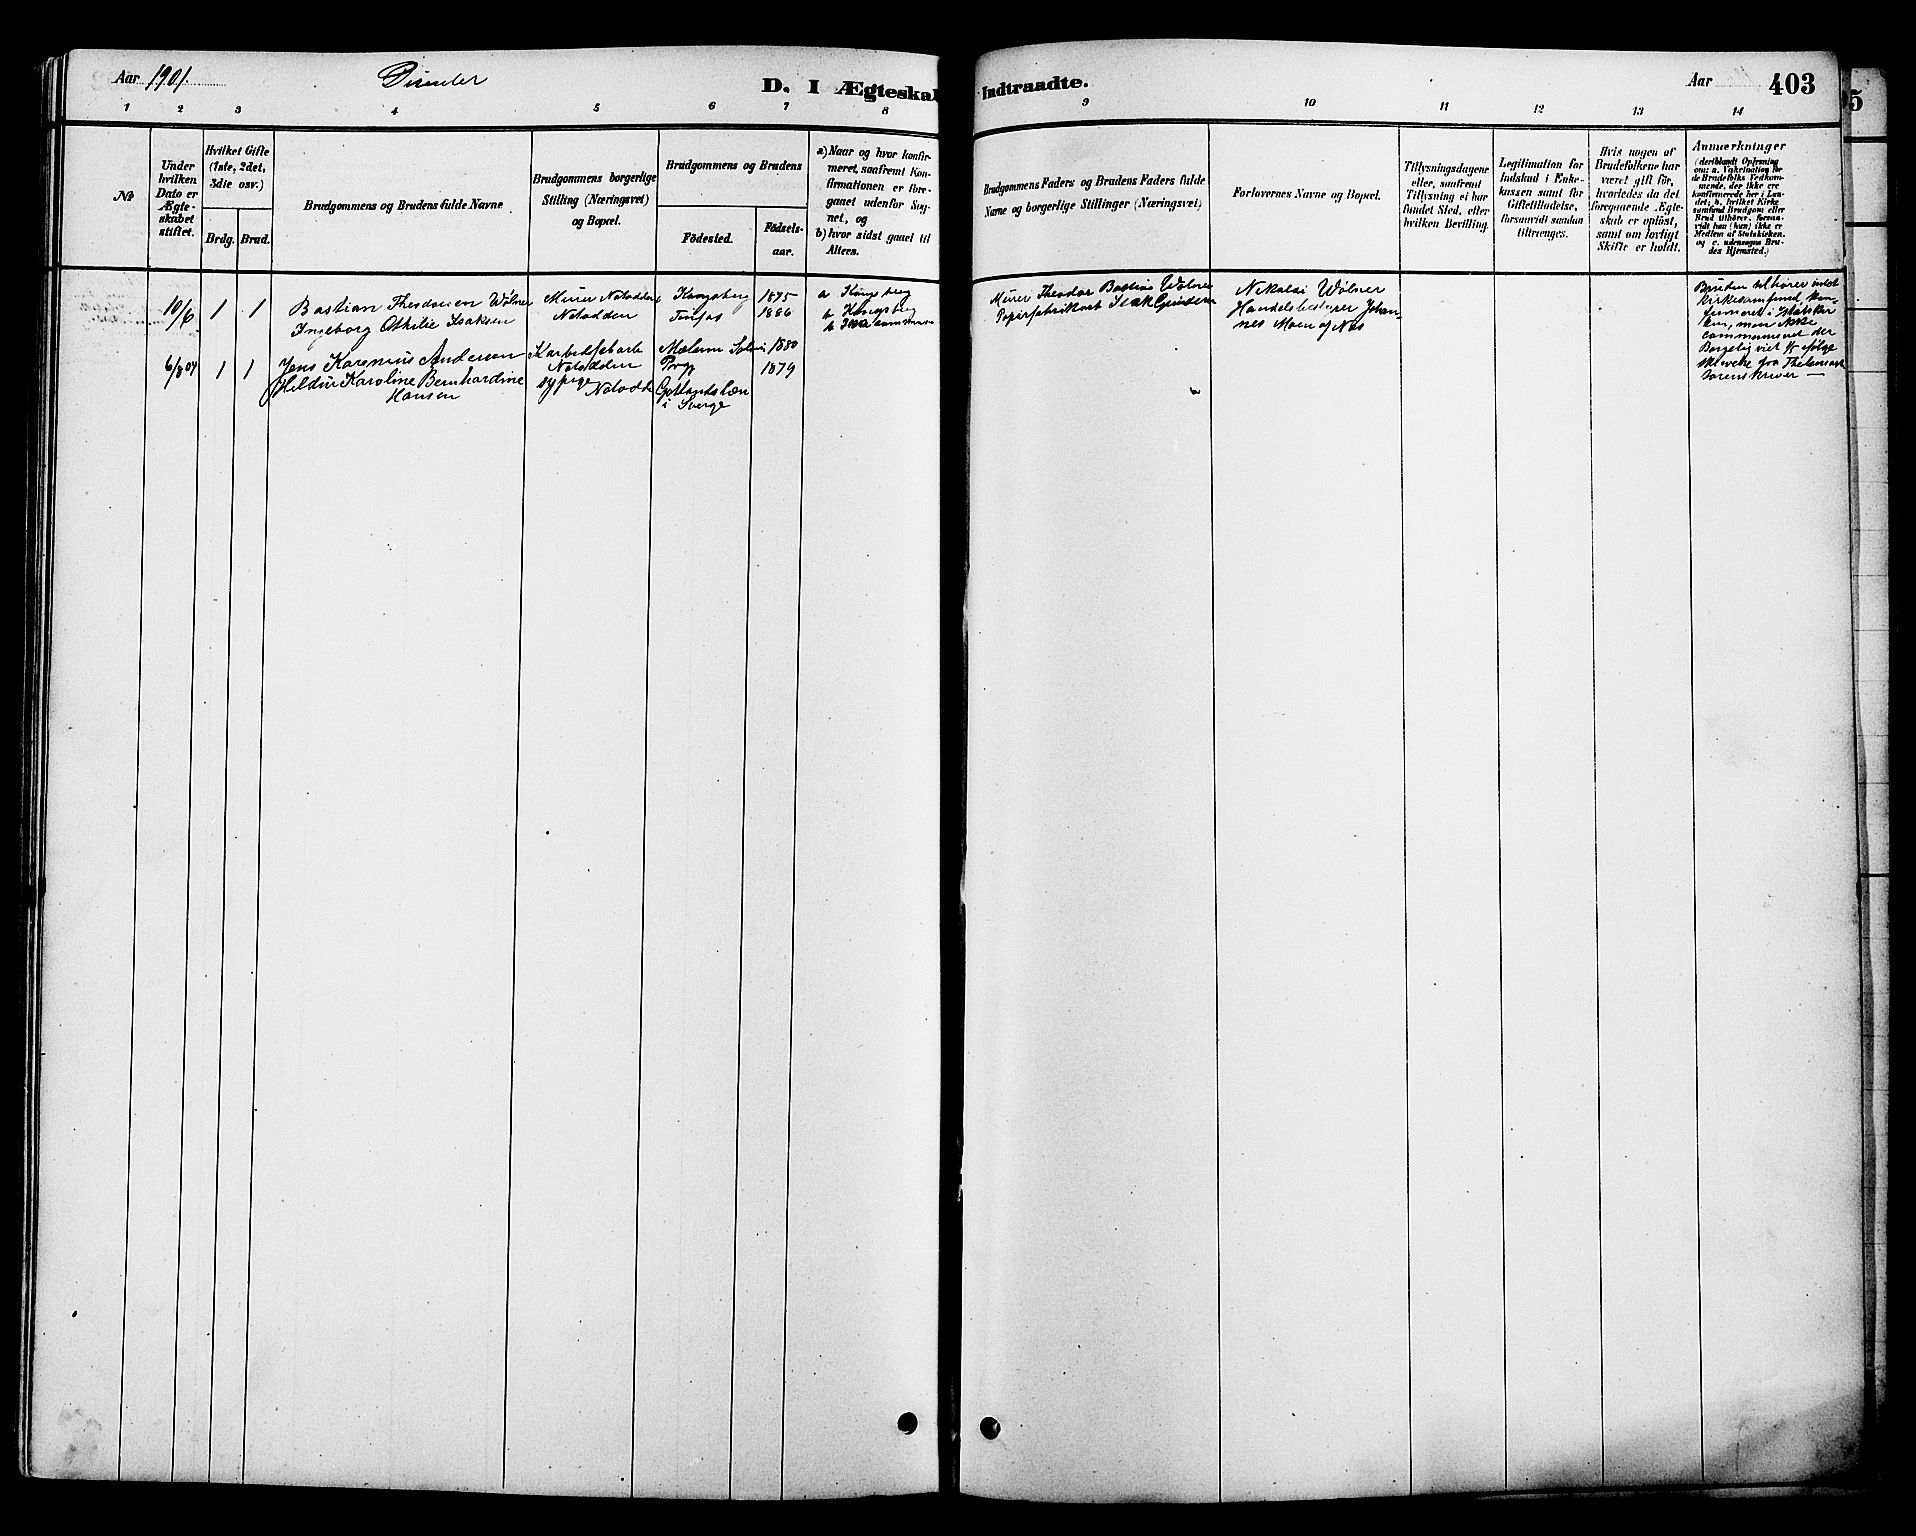 Aar 1901.
D. I Ægteskab
Indtraadte.
Aar
403
5
1 2 3 4 5 6 7 8
9 10 11 12 13 14
№
Under
hvilken
Dato er
Ægte-
skabet
stiftet.
Hvilket Gifte
(1ste, 2det,
3die osv.)
Brdg. Brud.
Brudgommens og Brudens fulde Navne
Brudgommens borgerlige
Stilling (Næringsvei)
og Bopæl.
Brudgommens og Brudens
Födested.
Födsels-
aar.
a) Naar og hvor konfir-
meret, saafremt Kon-
firmationen er fore-
gaaet udenfor Sog-
net, og
b) hvor sidst gaaet til
Alters.
Brudgommens Faders og Brudens Faders fulde
Navne og borgerlige Stillinger (Næringsvei)
Forlovernes Navne og Bopæl.
Tillysningsdagene
eller, saafremt
Tillysning ei har
fundet Sted, efter
hvilken Bevilling.
Legitimation for
Indskud i Enke-
kassen samt for
Giftetilladelse,
forsaavidt saadan
tiltrænges.
Hvis nogen af
Brudefolkene har
været gift för,
hvorledes da det
foregaaende Ægte-
skab er oplöst,
samt om lovligt
Skifte er holdt.
Anmærkninger
(deriblandt Oplysning
om: a. Vakcination for
de Brudefolks Vedkom-
mende, der ikke ere
konfirmerede her i Lan-
det; b. hvilket Kirke-
samfund Brudgom eller
Brud tilhörer, forsaa-
vidt han (hun) ikke er
Medlem af Statskirken.
og c. udensogns Bru-
des Hjemsted.)
10/6 1 1 Bastian Theodorsen Wølner Murer Notodden Kongsberg 1875 a Kongsberg
Ingeborg Othilie Isaksen Notodden Tinfos 1886 b Kongsberg
Murer Theodor Bastian Wølner
Papirfabrikarb Isak Grinden
Nikolai Wølner
Handelsbestyrer Johan-
nes Moen og Nos
Bruden tilhører intet
kirkesamfund, kon-
firmeret i Statskir
ken, men ikke
6/8 04 1 1 Jens Karenius Andersen Karbidfabarb 1880
Hildur Karoline Bernhardine Notodden 1879
Hansen
sypige Notodde
Gotlandslæn
i Sverge
Borgelig viet
fra Thelemark
Sorenskriver —